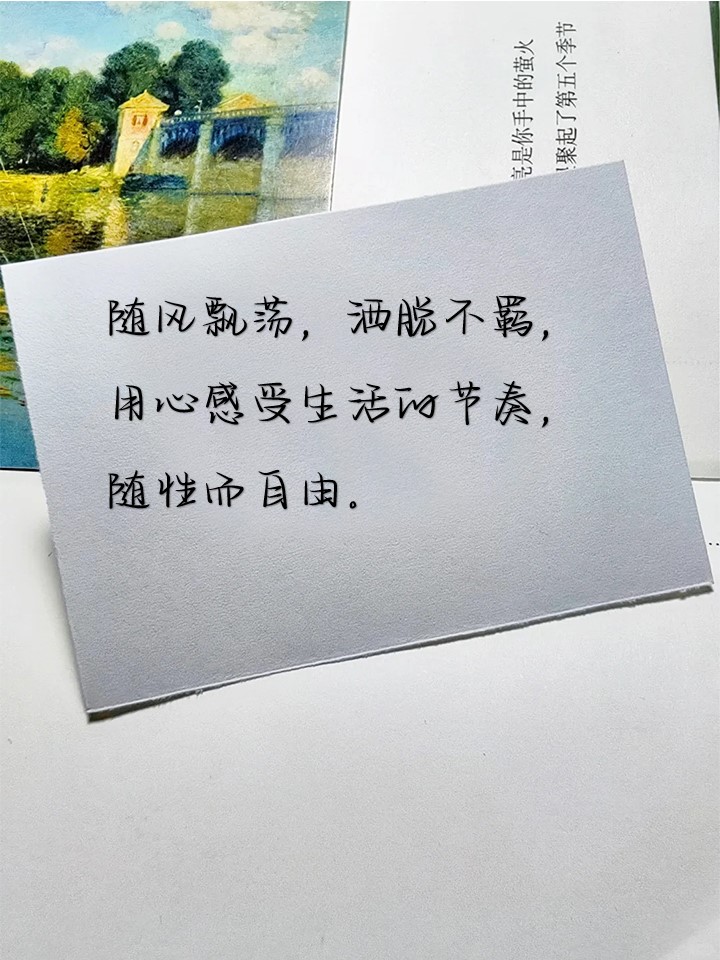 随风飘荡，洒脱不羁，
用心感受生活的节奏，
随性而自由。
是你手中的萤火
聚起了第五个季节